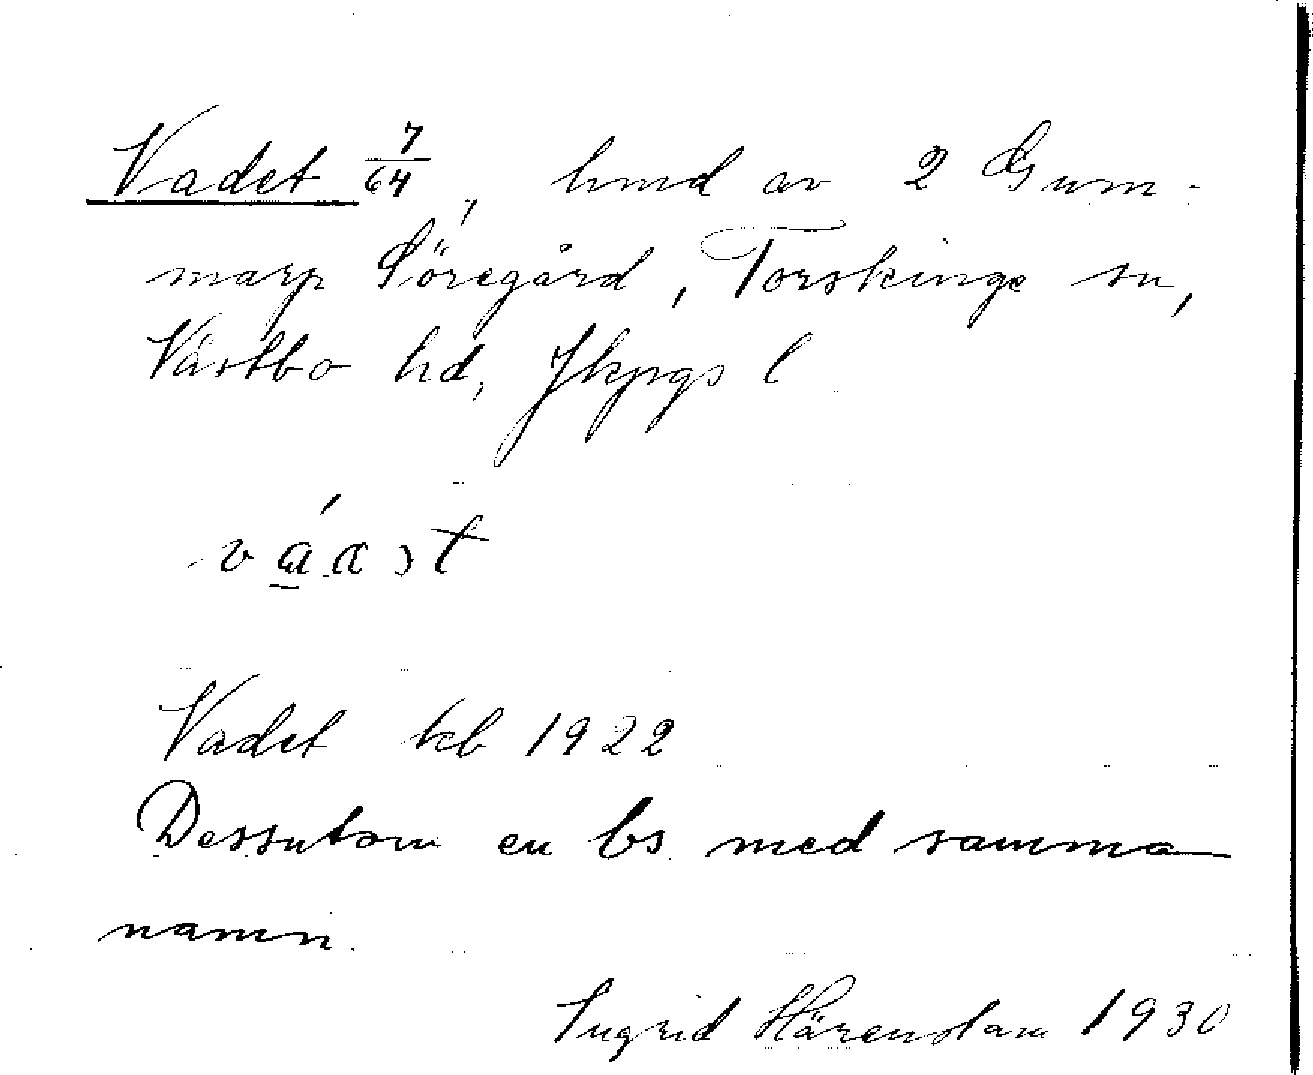 Vadet 7/64, hmd av 2 Gum-
marp Söregård, Torskinge sn,
Västbo hd, Jkpgs l
Vadet kb 1922
Dessutom en bs med samma
namn.
Ingrid Härenstam 1930